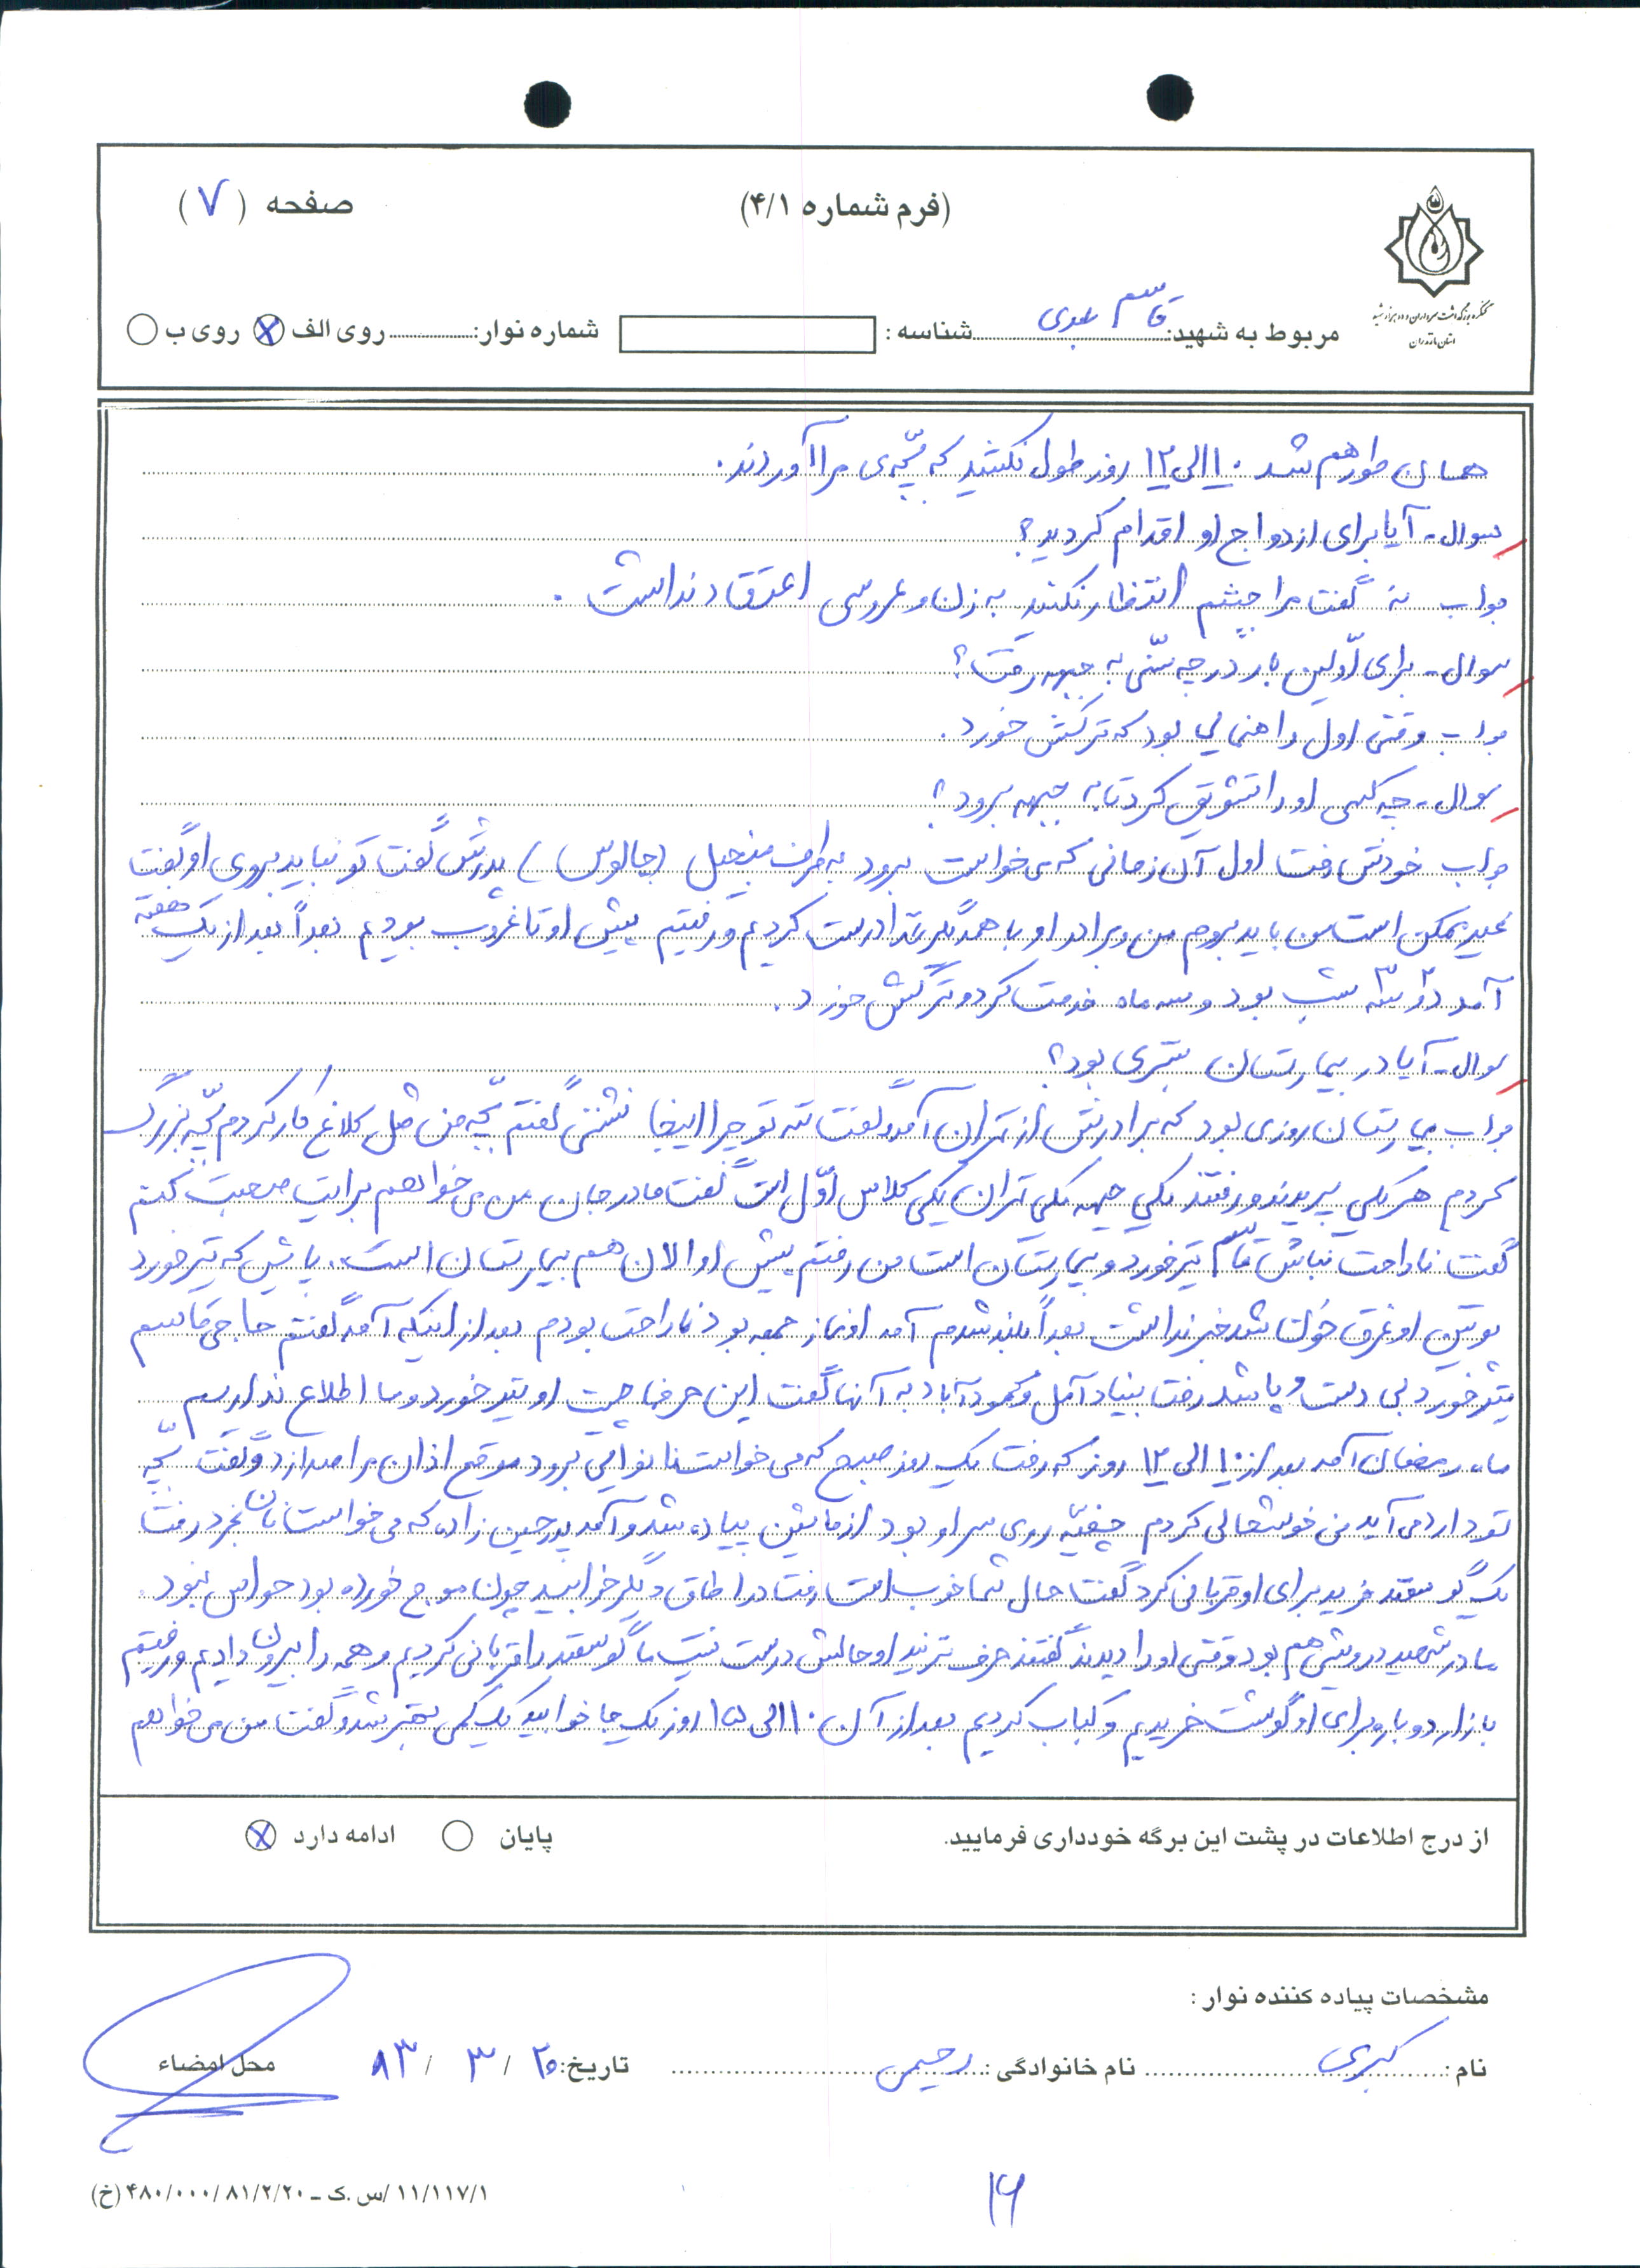 (فرم شماره ۴/۱)
صفحه (۷)
کنگره بزرگداشت سرداران و ده هزار شهید
استان مازندران
مربوط به شهید: قاسم عبدی شناسه : شماره نوار: روی الف روی ب
همان طور هم شد ۱۰ الی ۱۲ روز طول نکشید که بچّه‌ی مرا آوردند.
سوال - آیا برای ازدواج او اقدام کردید؟
جواب نه گفت مرا چشم انتظار نکنید به زن و عروسی اعتقاد نداشت.
سوال - برای اوّلین بار در چه سنّی به جبهه رفت؟
جواب وقتی اول راهنمایی بود که ترکش خورد.
سوال - چه کسی او را تشویق کرد تا به جبهه برود؟
جواب خودش رفت اول آن زمانی که می‌خواست برود به طرف منجیل (چالوس) پدرش گفت تو نباید بروی او گفت
غیر ممکن است من باید بروم من و برادر او با همدیگر غذا درست کردیم و رفتیم پیش او تا غروب بودیم بعداً بعد از یک هفته
آمد ۲ ۳ شب بود و سه ماه خدمت کرد و ترکش خورد.
سوال - آیا در بیمارستان بستری بود؟
جواب بیمارستان روزی بود که برادرش از تهران آمد و گفت ننه تو چرا اینجا نشستی گفتم بچّه من مثل کلاغ کار کردم بچّه بزرگ
کردم هر یکی پریدند و رفتند یکی جبهه یکی تهران یکی کلاس اوّل است گفت مادر جان من می‌خواهم برایت صحبت کنم
گفت ناراحت نباش قاسم تیر خورد و بیمارستان است من رفتم پیش او الان هم بیمارستان است. پایش که تیر خورد
پوتین او غرق خون شد خبر نداشت بعداً بلند شدم آمد او نماز جمعه بود ناراحت بودم بعد از اینکه آمد گفتم حاجی قاسم
تیر خورد بی دست و پا شد رفت بنیاد آمل و محمودآباد به آنها گفت این حرفها چیست او تیر خورد و ما اطلاع نداریم
ماه رمضان آمد بعد از ۱۰ الی ۱۲ روز که رفت یک روز صبح که می خواست نانوایی برود موقع اذان مرا صدا زد و گفت بچّه
تو دارد می آید من خوشحالی کردم چفیّه روی سر او بود از ماشین پیاده شد و آمد پدر حسین زاده که می خواست نان بخرد رفت
یک گوسفند خرید برای او قربانی کرد گفت حال شما خوب است رفت در اطاق دیگر خوابید چون موج خورده بود حواس نبود
مادر شهید درویشی هم بود وقتی او را دیدند گفتند حرف نزنید او حالش درست نیست ما گوسفند را قربانی کردیم و همه را بیرون دادیم و رفتیم
بازار دوباره برای او گوشت خریدیم و کباب کردیم بعد از آن ۱۰ الی ۱۵ روز یک جا خوابید یک کمی بهتر شد و گفت من می خواهم
از درج اطلاعات در پشت این برگه خودداری فرمایید.
پایان ادامه دارد
مشخصات پیاده کننده نوار :
نام : کبری نام خانوادگی : رحیمی تاریخ: ۲۰ / ۳ / ۸۳ محل امضاء
۱۱/۱۱۷/۱ /س.ک ـ ۴۸۰/۰۰۰/۸۱/۲/۲۰ (خ)
۱۶